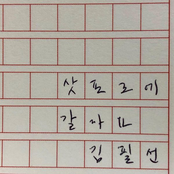 삿포로에
갈까요
김필선